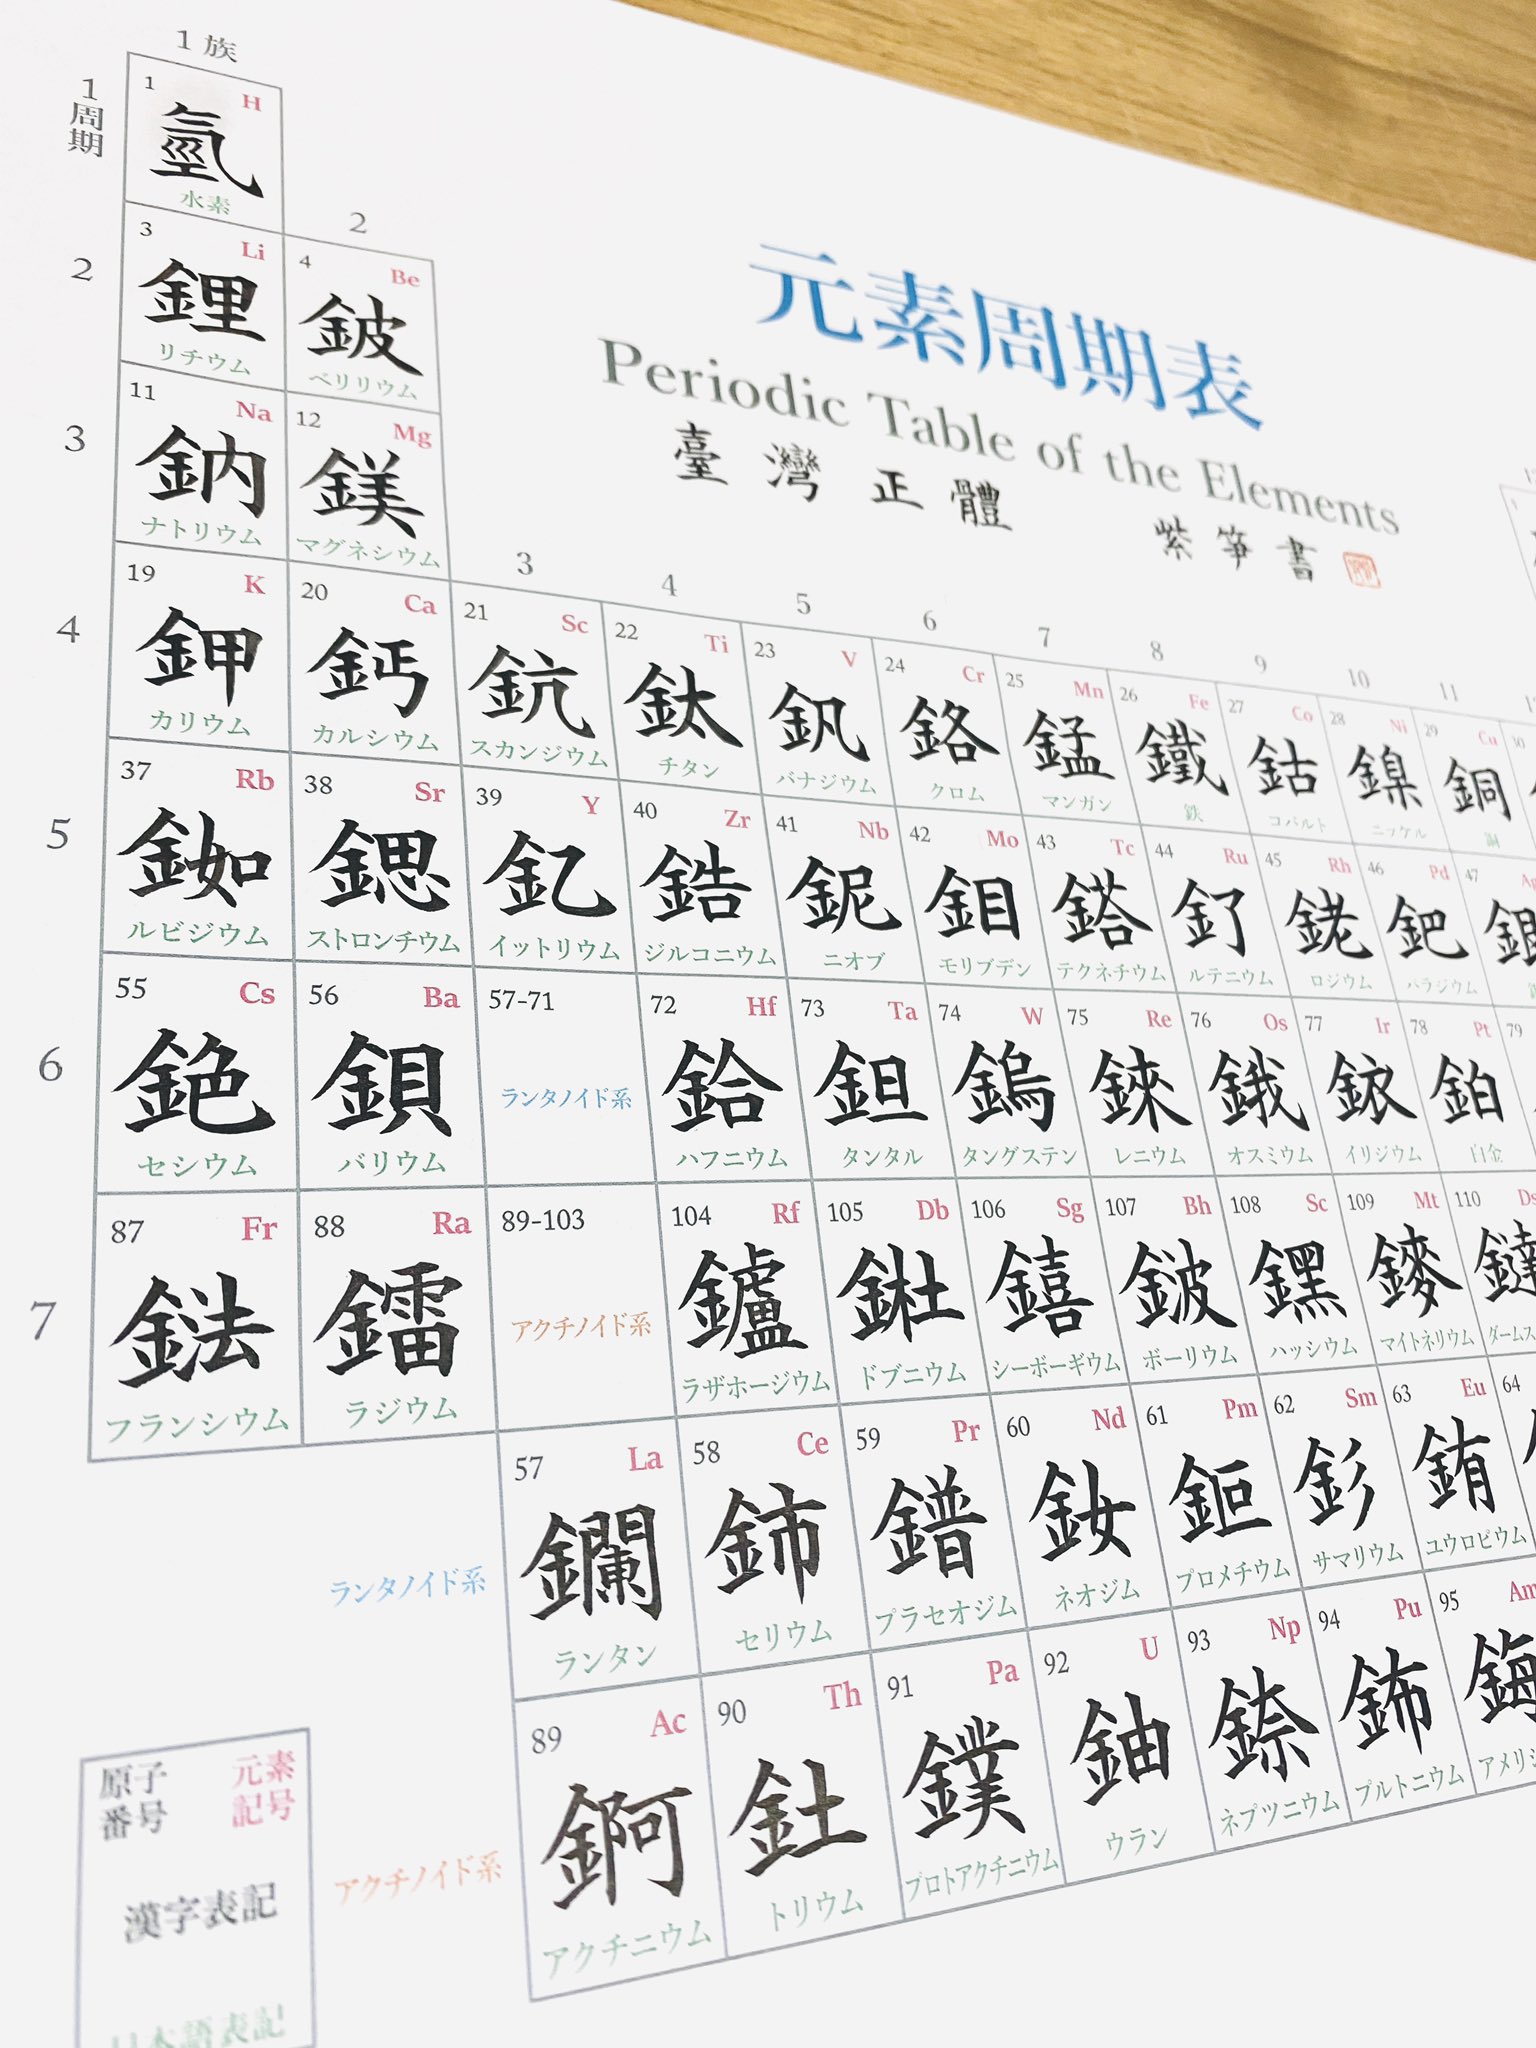 1 族
1 周期
1 H
氫
水素
2
2
3 Li
鋰
リチウム
4 Be
鈹
ベリリウム
元素周期表
Periodic Table of the Elements
臺灣正體
紫箏書
3
11 Na
鈉
ナトリウム
12 Mg
鎂
マグネシウム
3 4 5 6 7 8 9 10 11
4
19 K
鉀
カリウム
20 Ca
鈣
カルシウム
21 Sc
鈧
スカンジウム
22 Ti
鈦
チタン
23 V
釩
バナジウム
24 Cr
鉻
クロム
25 Mn
錳
マンガン
26 Fe
鐵
鉄
27 Co
鈷
コバルト
28 Ni
鎳
ニッケル
29 Cu
銅
銅
30
5
37 Rb
銣
ルビジウム
38 Sr
鍶
ストロンチウム
39 Y
釔
イットリウム
40 Zr
鋯
ジルコニウム
41 Nb
鈮
ニオブ
42 Mo
鉬
モリブデン
43 Tc
鎝
テクネチウム
44 Ru
釕
ルテニウム
45 Rh
銠
ロジウム
46 Pd
鈀
パラジウム
47 Ag
6
55 Cs
銫
セシウム
56 Ba
鋇
バリウム
57-71
ランタノイド系
72 Hf
鉿
ハフニウム
73 Ta
鉭
タンタル
74 W
鎢
タングステン
75 Re
錸
レニウム
76 Os
鋨
オスミウム
77 Ir
銥
イリジウム
78 Pt
鉑
白金
79
7
87 Fr
鍅
フランシウム
88 Ra
鐳
ラジウム
89-103
アクチノイド系
104 Rf
鑪
ラザホージウム
105 Db
𨧀
ドブニウム
106 Sg
𨭎
シーボーギウム
107 Bh
𨨏
ボーリウム
108 Sc
𨭆
ハッシウム
109 Mt
䥑
マイトネリウム
110 Ds
鐽
ダームス
ランタノイド系
57 La
鑭
ランタン
58 Ce
鈰
セリウム
59 Pr
鐠
プラセオジム
60 Nd
釹
ネオジム
61 Pm
鉕
プロメチウム
62 Sm
釤
サマリウム
63 Eu
銪
ユウロピウム
64
アクチノイド系
89 Ac
錒
アクチニウム
90 Th
釷
トリウム
91 Pa
鏷
プロトアクチニウム
92 U
鈾
ウラン
93 Np
錼
ネプツニウム
94 Pu
鈽
プルトニウム
95 Am
鋂
アメリシ
原子番号
元素記号
漢字表記
日本語表記